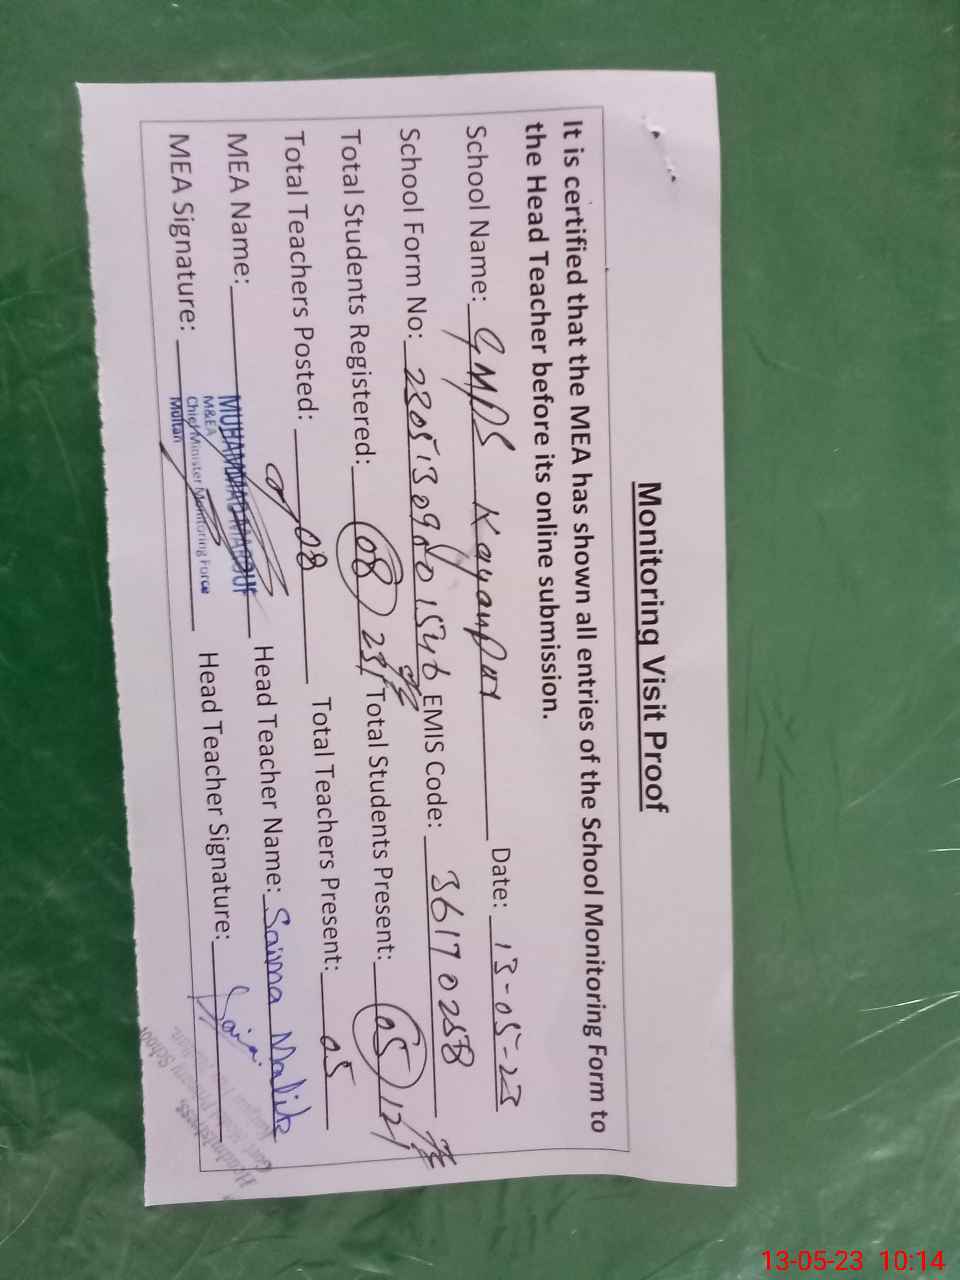 Monitoring Visit Proof
It is certified that the MEA has shown all entries of the School Monitoring Form to
the Head Teacher before its online submission.
School Name: GMPS Kayanpur Date: 13-05-23
School Form No: EMIS Code: 36170258
Total Students Registered: 08 231 Total Students Present: 05 121
Total Teachers Posted: 08 Total Teachers Present: 05
MEA Name: MUHAMMAD MAROUF Head Teacher Name: Saima Malik
M&EA
Chief Minister Monitoring Force
Multan
MEA Signature: Head Teacher Signature: Saima
Headmistress
13-05-23 10:14